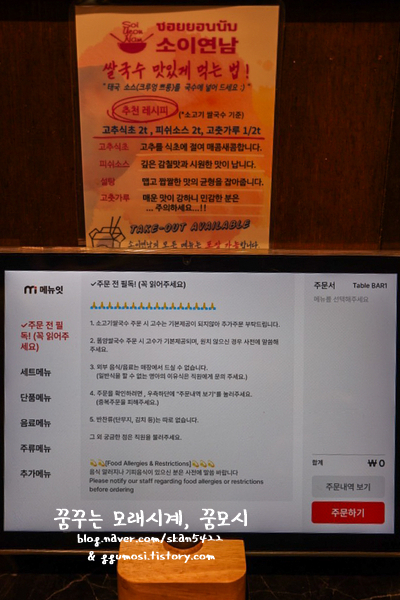 Soi Yeon Nam
ซอยยอนนัม
소이연남
쌀국수 맛있게 먹는 법!
"태국 소스(크루엉 쁘룽)를 국수에 넣어 드세요 :)"
추천 레시피 (*소고기 쌀국수 기준)
고추식초 2t , 피쉬소스 2t, 고춧가루 1/2t
고추식초 고추를 식초에 절여 매콤새콤합니다.
피쉬소스 깊은 감칠맛과 시원한 맛이 납니다.
설탕 맵고 짭짤한 맛의 균형을 잡아줍니다.
고춧가루 매운 맛이 강하니 민감한 분은
... 주의하세요...!!
TAKE-OUT AVAILABLE
소이연남의 모든 메뉴는 포장 가능합니다
메뉴잇
✓주문 전 필독! (꼭 읽어주세요)
세트메뉴
단품메뉴
음료메뉴
주류메뉴
추가메뉴
✓주문 전 필독! (꼭 읽어주세요)
🙏🙏🙏🙏🙏🙏🙏🙏🙏🙏🙏
1. 소고기쌀국수 주문 시 고수는 기본제공이 되지않아 추가주문 부탁드립니다.
2. 똠양쌀국수 주문 시 고수가 기본제공되며, 원치 않으신 경우 사전에 말씀해
주세요.
3. 외부 음식/음료는 매장에서 드실 수 없습니다.
(일반식을 할 수 없는 영아의 이유식은 직원에게 문의 주세요.)
4. 주문을 확인하려면, 우측하단에 "주문내역 보기"를 눌러주세요.
(중복주문을 피해주세요.)
5. 반찬류(단무지, 김치 등)는 따로 없습니다.
그 외 궁금한 점은 직원을 불러주세요.
💫💫[Food Allergies & Restrictions]💫💫💫
음식 알러지나 기피음식이 있으신 분은 사전에 말씀 바랍니다
Please notify our staff regarding food allergies or restrictions
before ordering
주문서 Table BAR1
메뉴를 선택해주세요
합계 ₩0
주문내역 보기
주문하기
꿈꾸는 모래시계, 꿈모시
blog.naver.com/skan5422
& ggumosi.tistory.com